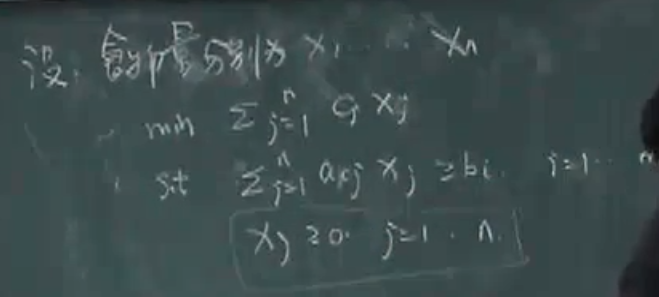 设: 食物量分别为 x₁ ... xₙ
min Σⱼ₌₁ⁿ cⱼ xⱼ
s.t Σⱼ₌₁ⁿ aᵢⱼ xⱼ ≥ bᵢ. i=1 ...
xⱼ ≥ 0. j=1 . n.